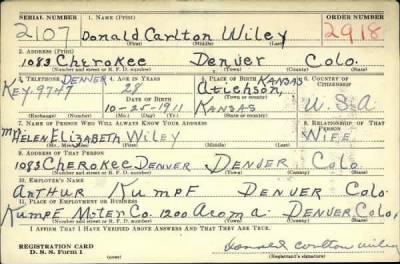 SERIAL NUMBER 1. NAME (Print) ORDER NUMBER
2107 Donald Carlton Wiley 2918
(First) (Middle) (Last)
2. ADDRESS (Print)
1083 Cherokee Denver Colo.
(Number and street or R. F. D. number) (Town) (County) (State)
3. TELEPHONE 4. AGE IN YEARS 5. PLACE OF BIRTH 6. COUNTRY OF CITIZENSHIP
DENVER 28 KANSAS
KEY.9747 DATE OF BIRTH Atichson, U.S.A
10-25-1911 KANSAS
7. NAME OF PERSON WHO WILL ALWAYS KNOW YOUR ADDRESS 8. RELATIONSHIP OF THAT PERSON
HELEN ELIZABETH WILEY WIFE
(Mr., Mrs., Miss) (First) (Middle) (Last)
9. ADDRESS OF THAT PERSON
1083 CHEROKEE DENVER DENVER Colo.
(Number and street or R. F. D. number) (Town) (County) (State)
10. EMPLOYER'S NAME
ARTHUR KUMPF DENVER Colo
11. PLACE OF EMPLOYMENT OR BUSINESS
KUMPF Moter Co. 1200 Acoma DENVER Colo,
(Number and street or R. F. D. number) (Town) (County) (State)
I AFFIRM THAT I HAVE VERIFIED ABOVE ANSWERS AND THAT THEY ARE TRUE.
REGISTRATION CARD
D. S. S. Form 1 Donald Carlton Wiley